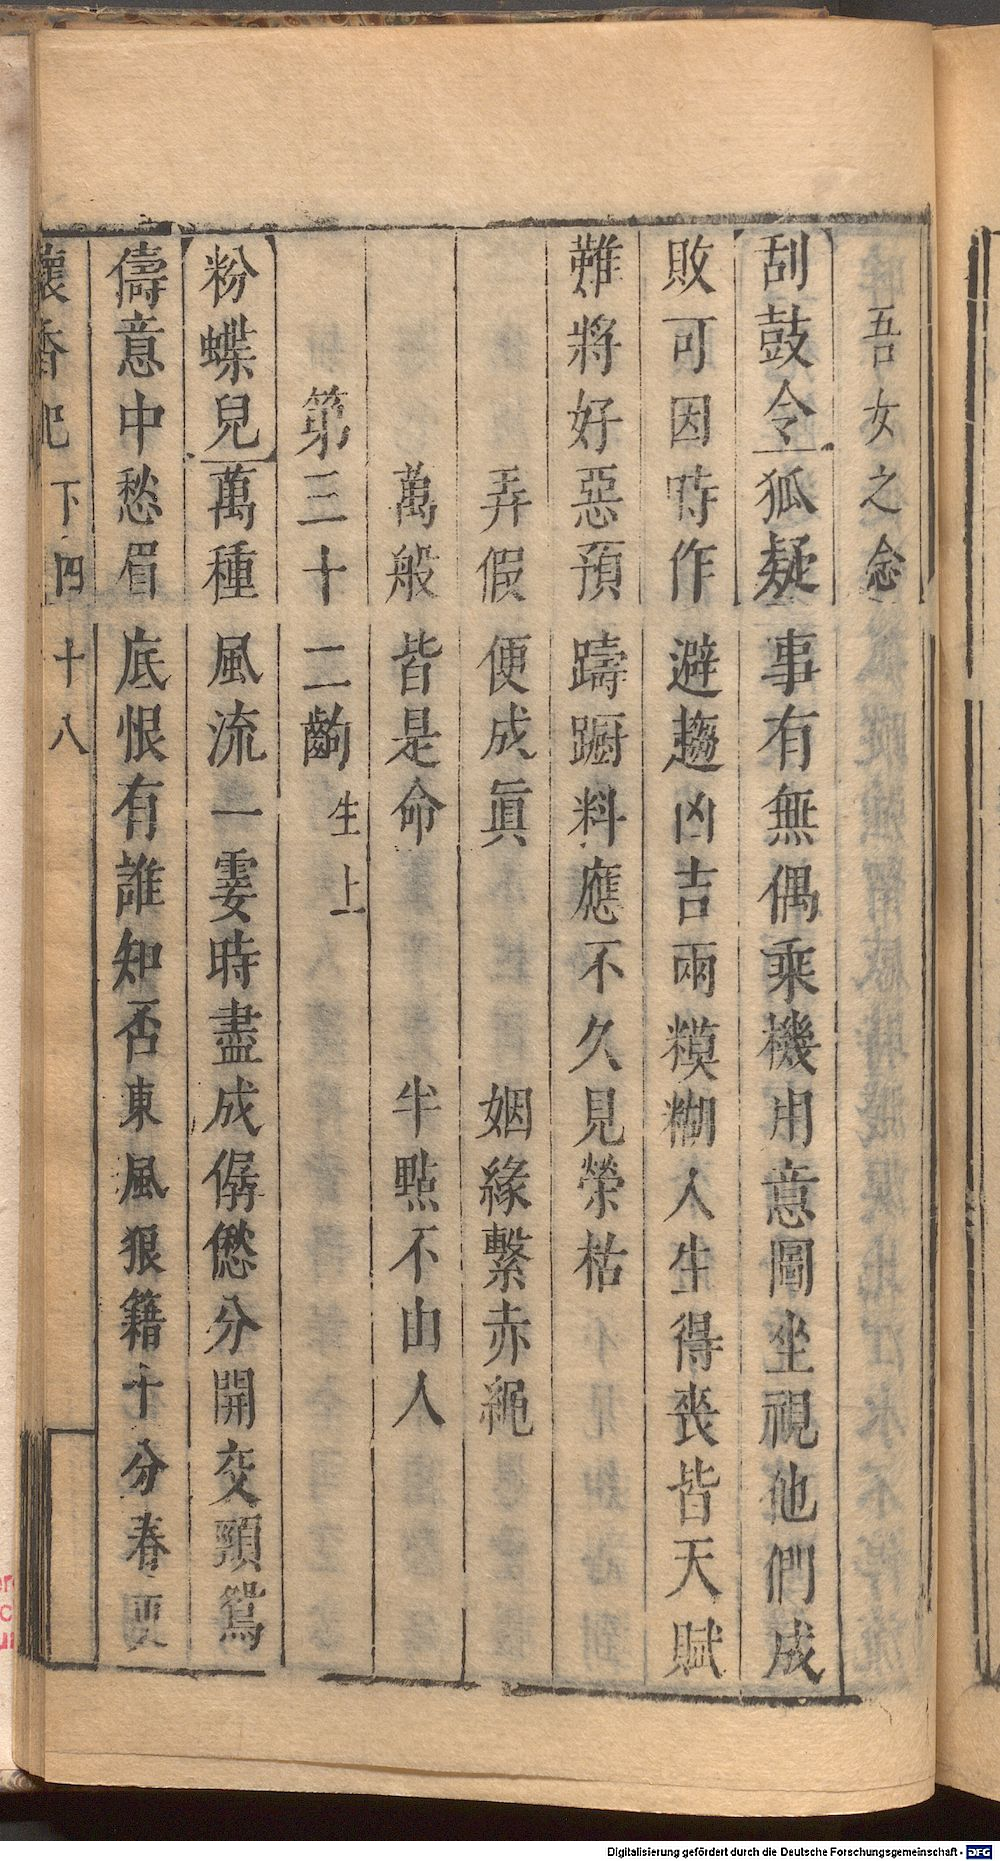 吾女之念
刮鼓令狐疑事有無偶乘機用意圖坐視他們成
敗可因時作避趨凶吉兩糢糊人生得喪皆天賦
難將好惡預躊蹰料應不久見榮枯
弄假便成眞 姻緣繫赤繩
萬般皆是命 半點不由人
第三十二齣 生上
粉蝶兒萬種風流一霎時盡成僝僽分開交頸鴛
儔意中愁眉底恨有誰知否東風狠籍十分春更
懷香記 下 四十八
Digitalisierung gefördert durch die Deutsche Forschungsgemeinschaft - DFG